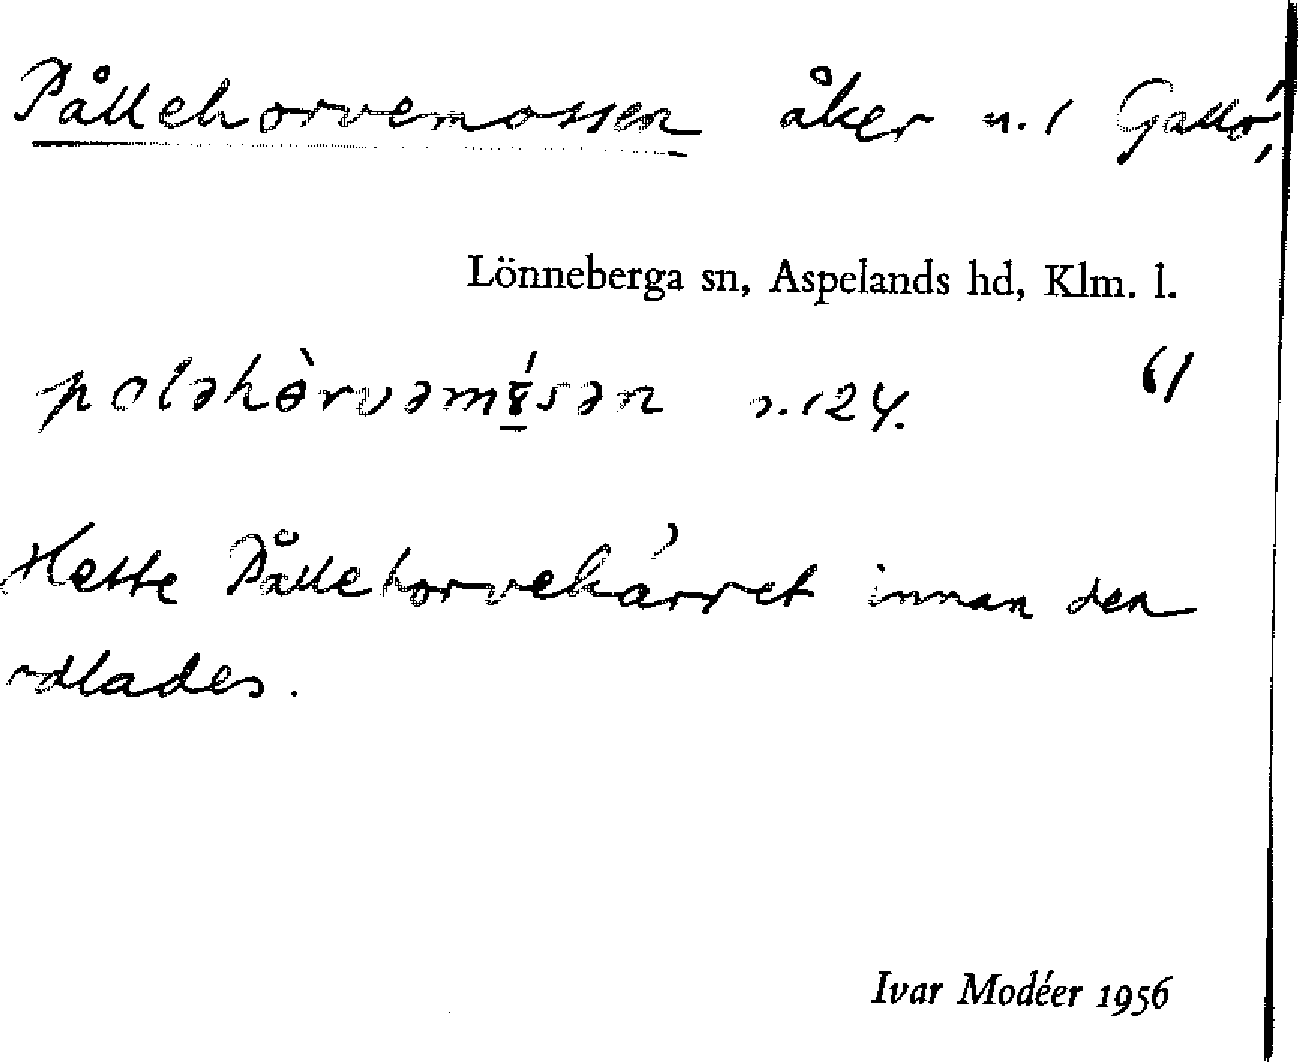 Pållehorvemossen åker n. 1 Gallö,
Lönneberga sn, Aspelands hd, Klm. l.
s. 124. 61
Hette Pållehorvekärret innan den
odlades.
Ivar Modéer 1956